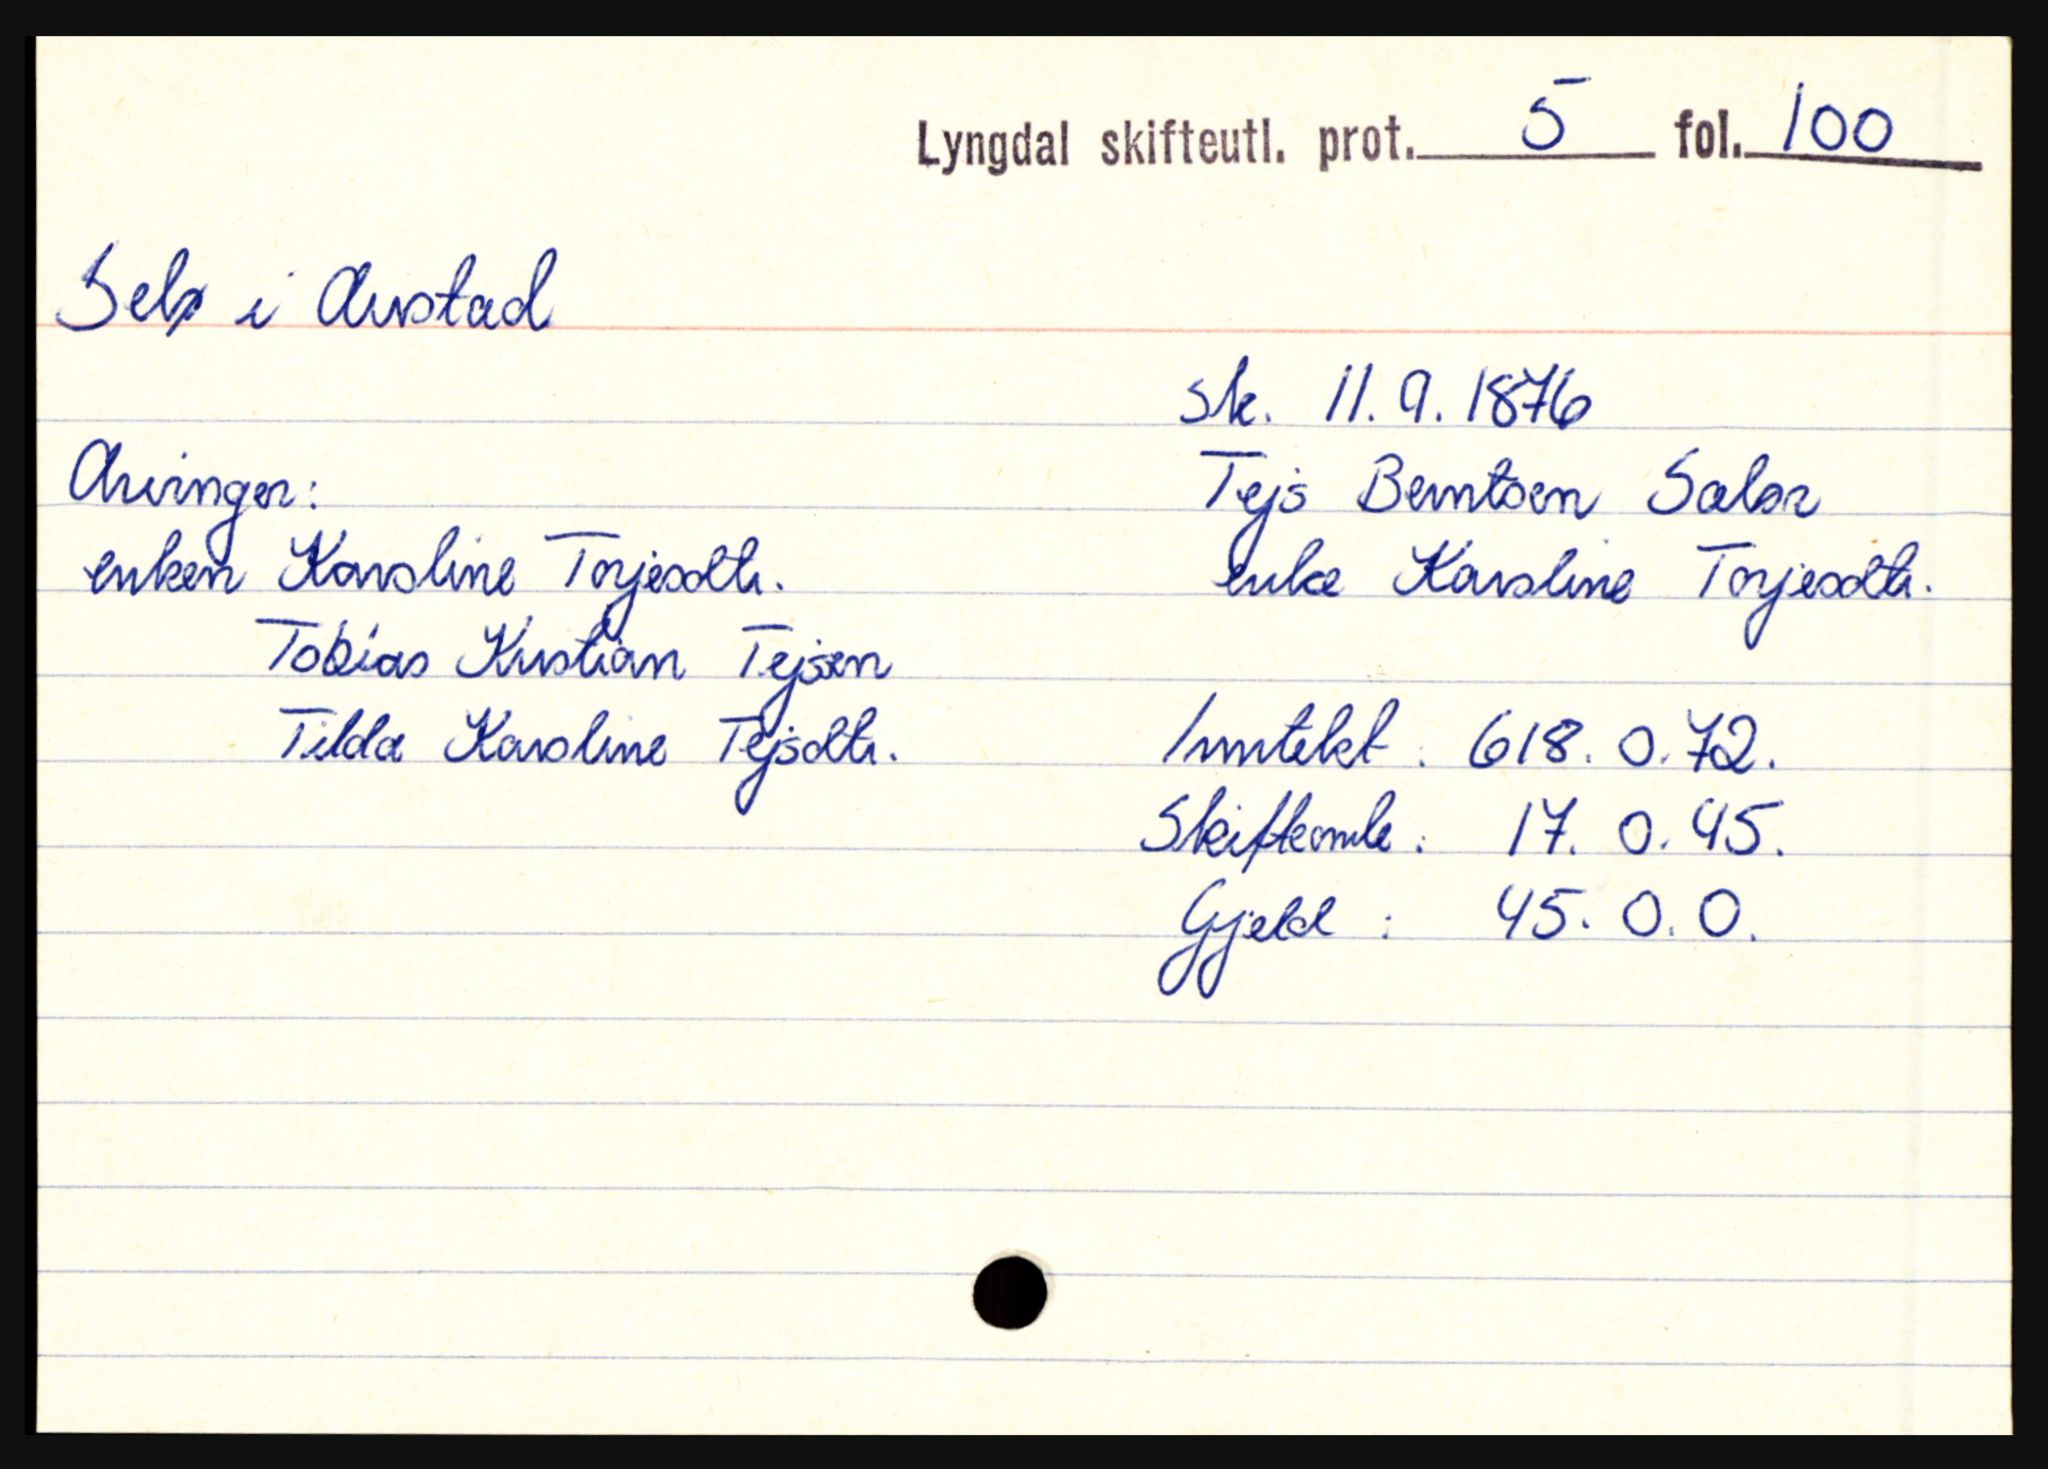 Lyngdal skifteutl. prot. 5 fol. 100
Selø i Austad
sk. 11.9.1876
Arvinger:
Tejs Berntsen Sælør
enken Karoline Torjesdtr.
enke Karoline Torjesdtr.
Tobias Kristian Tejsen
Tilda Karoline Tejsdtr.
Inntekt: 618. 0. 72.
Skifteomk: 17. 0. 45.
Gjeld: 45. 0. 0.